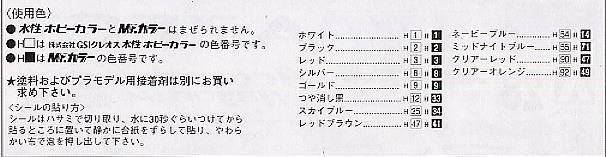 〈使用色〉
●水性ホビーカラーとMr.カラーはまぜられません。
●H□は株式会社GSIクレオス水性ホビーカラーの色番号です。
●H■はMr.カラーの色番号です。
★塗料およびプラモデル用接着剤は別にお買い
求め下さい。
〈シールの貼り方〉
シールはハサミで切り取り、水に30秒ぐらいつけてから
貼るところに置いて静かに台紙をずらして貼り、やわら
かい布で泡を押し出して下さい。
ホワイト……………H 1 H 1
ブラック……………H 2 H 2
レッド……………H 3 H 3
シルバー……………H 8 H 8
ゴールド……………H 9 H 9
つや消し黒……………H 12 H 33
スカイブルー……………H 25 H 34
レッドブラウン……………H 47 H 41
ネービーブルー……………H 54 H 14
ミッドナイトブルー……………H 55 H 71
クリアーレッド……………H 90 H 47
クリアーオレンジ……………H 92 H 49